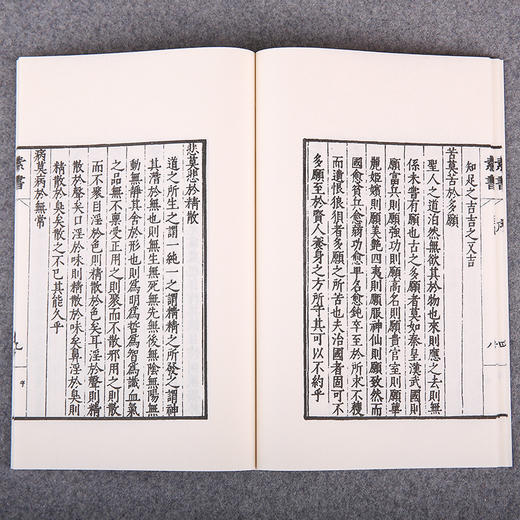 素書
八
知足之吉吉之又吉
苦莫苦於多願
聖人之道泊然無欲其於物也來則應之去則無
係未嘗有願也古之多願者莫如秦皇漢武國則
願富兵則願強功則願高名則願貴宮室則願華
麗姬嬪則願美艷四夷則願服神仙則願致然而
國愈貧兵愈弱功愈卑名愈鈍卒至於所求不穫
而遺恨狼狽者多願之所苦也夫治國者固可不
多願至於賢人養身之方所守其可以不約乎
悲莫悲於精散
道之所生之謂一純一之謂精精之所發之謂神
其潛於無也則無生無死無先無後無陰無陽無
動無靜其舍於形也則爲明爲哲爲智爲識血氣
之品無不稟受正用之則聚而不散邪用之則散
而不聚目淫於色則精散於色矣耳淫於聲則精
散於聲矣口淫於味則精散於味矣鼻淫於臭則
精散於臭矣散之不已其能久乎
病莫病於無常
素書
九